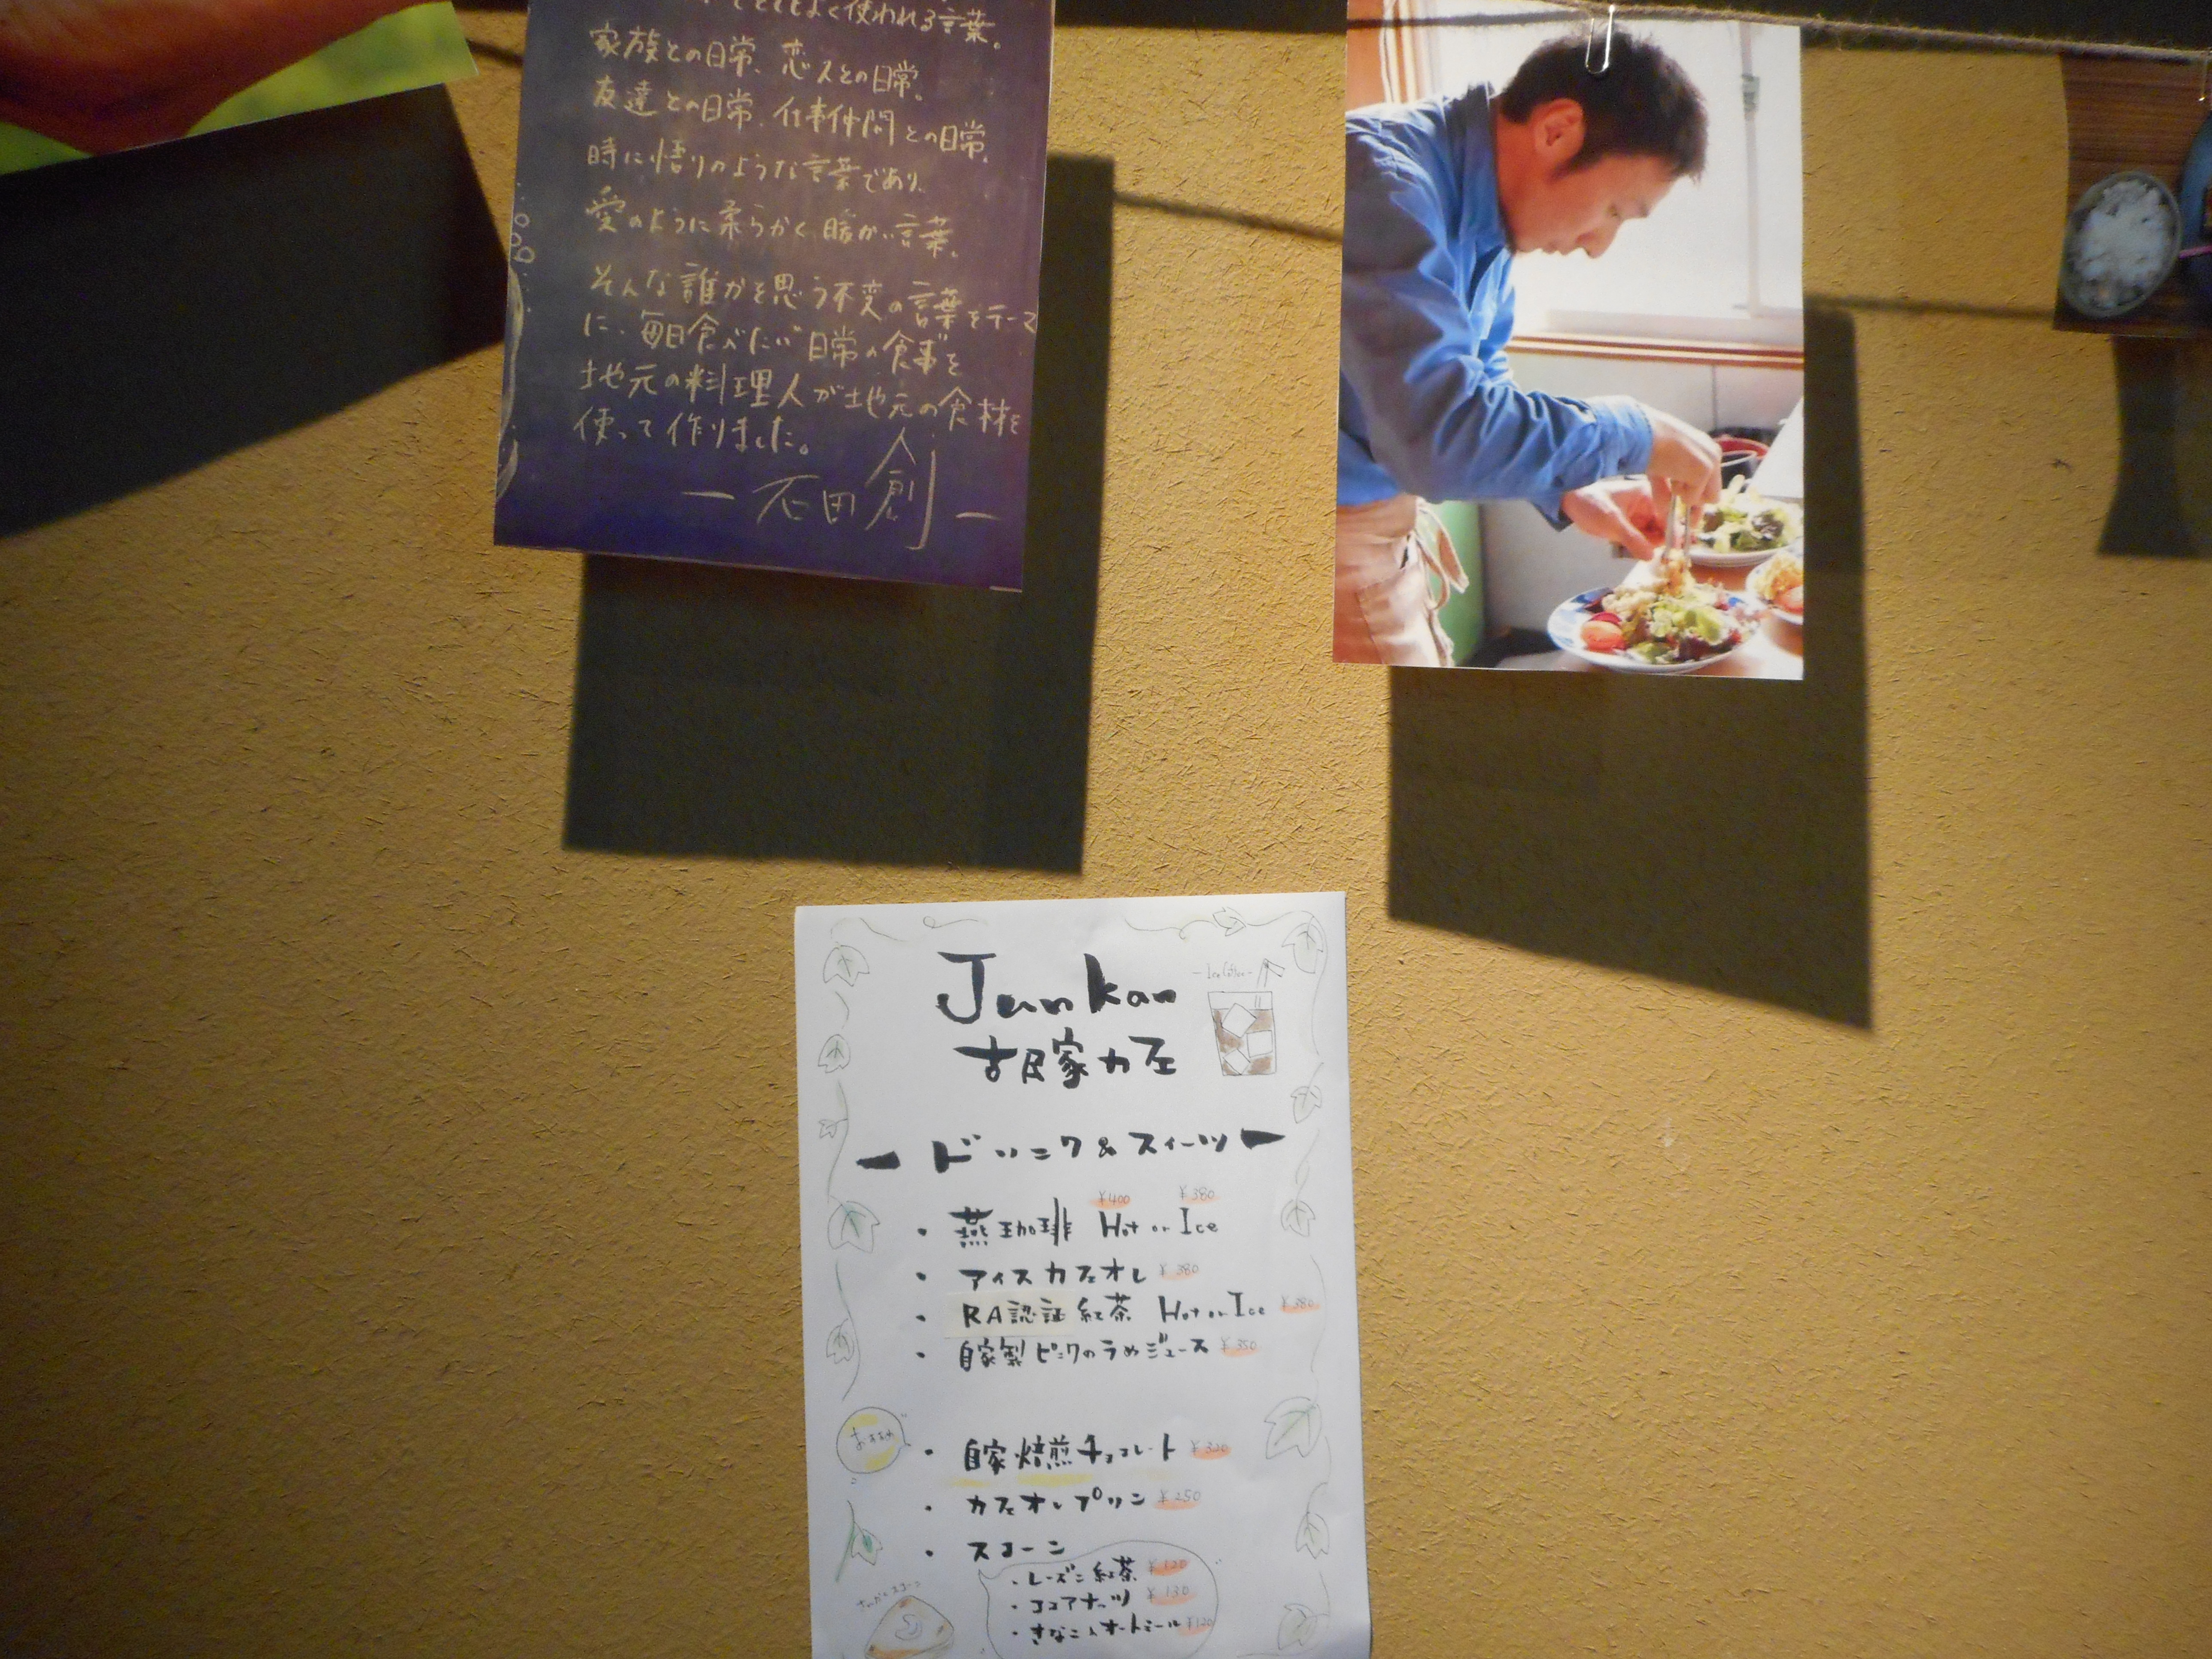 とてもよく使われる言葉。
家族との日常、恋人との日常。
友達との日常、仕事仲間との日常。
時に悟りのような言葉であり、
愛のように柔らかく暖かい言葉。
そんな誰かを思う不変の言葉をテーマ
に、毎日食べたい"日常の食事"を
地元の料理人が地元の食材を
使って作りました。
― 石田 創 ―
Junkan
- Ice Coffee -
古民家カフェ
ー ドリンク & スイーツ ー
¥400 ¥380
・燕珈琲 Hot or Ice
・アイスカフェオレ ¥380
・RA認証紅茶 Hot or Ice ¥380
・自家製ピンクのうめジュース ¥350
おすすめ
・自家焙煎チョコレート ¥320
・カフェオレプリン ¥250
・スコーン
・レーズン紅茶 ¥120
・ココアナッツ ¥130
・きなこ入オートミール ¥120
さんかくスコーン